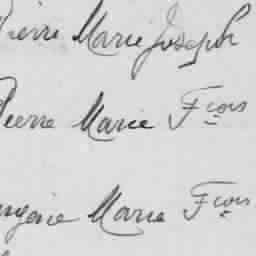 Pierre Marie Joseph
Pierre Marie Fcois
Eugène Marie Fcois